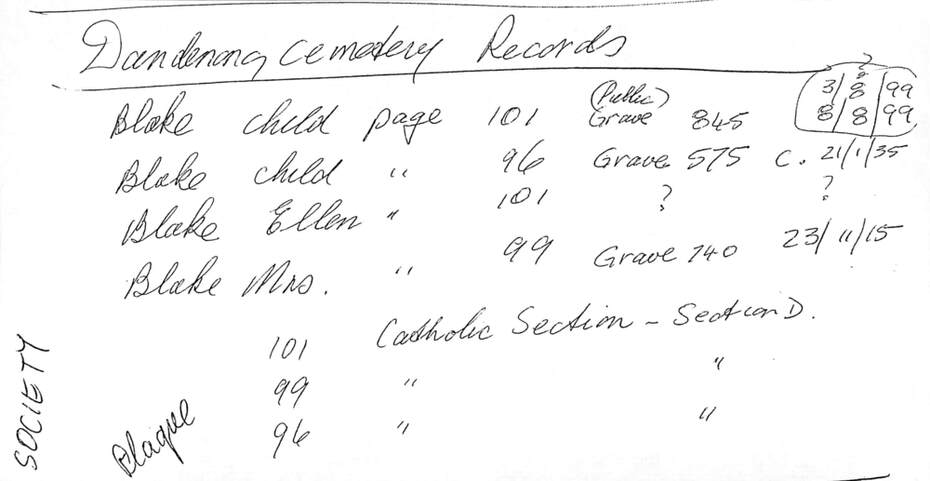 Dandenong Cemetery Records
?
Blake child page 101 (Public) Grave 845 3/8/99
8/8/99
Blake child " 96 Grave 575 c. 21/1/35
Blake Ellen " 101 ? ?
Blake Mrs. " 99 Grave 740 23/11/15
101 Catholic Section - Section D.
99 " "
96 " "
Blaque
SOCIETY